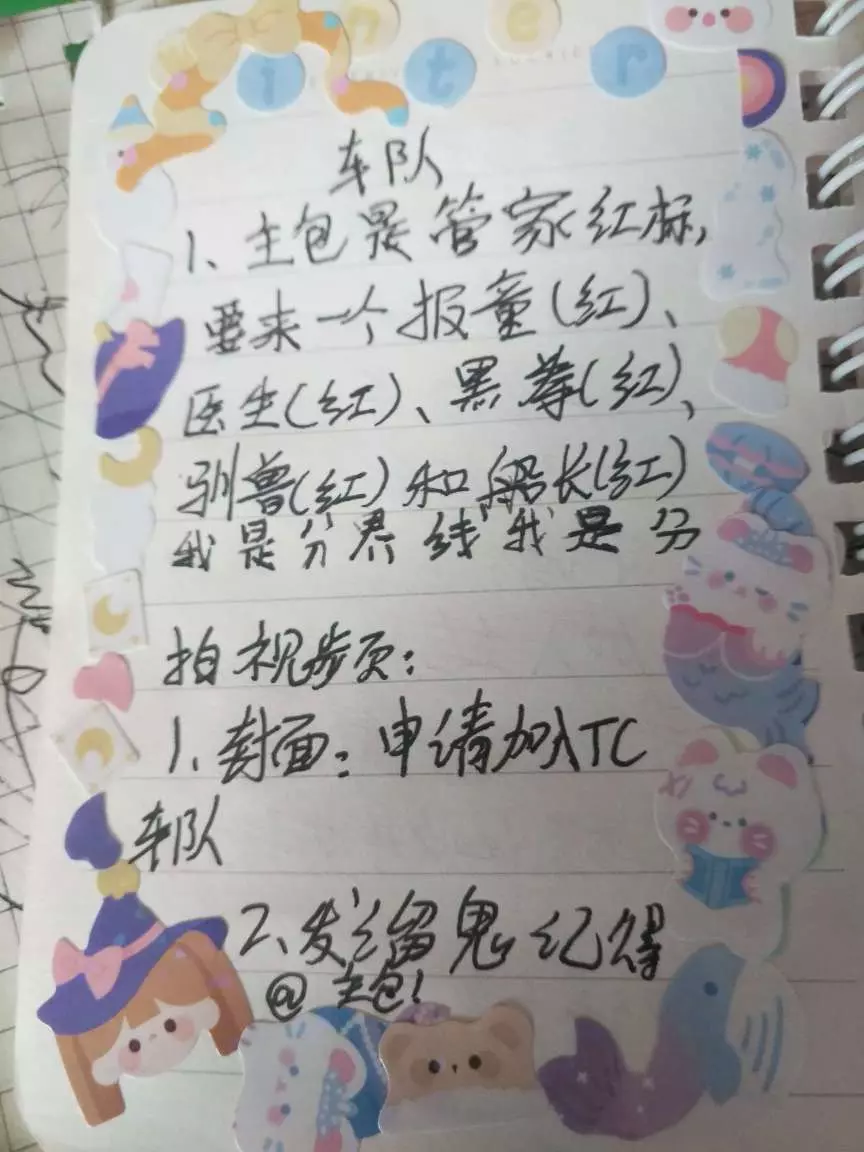 inter
车队
1、主包是管家红标,
要来一个报童(红)、
医生(红)、黑拳(红)、
驯兽(红)和船长(红)
我是分界线我是分
拍视步页:
1、封面:申请加入TC
车队
2、发溜鬼记得
@主包!